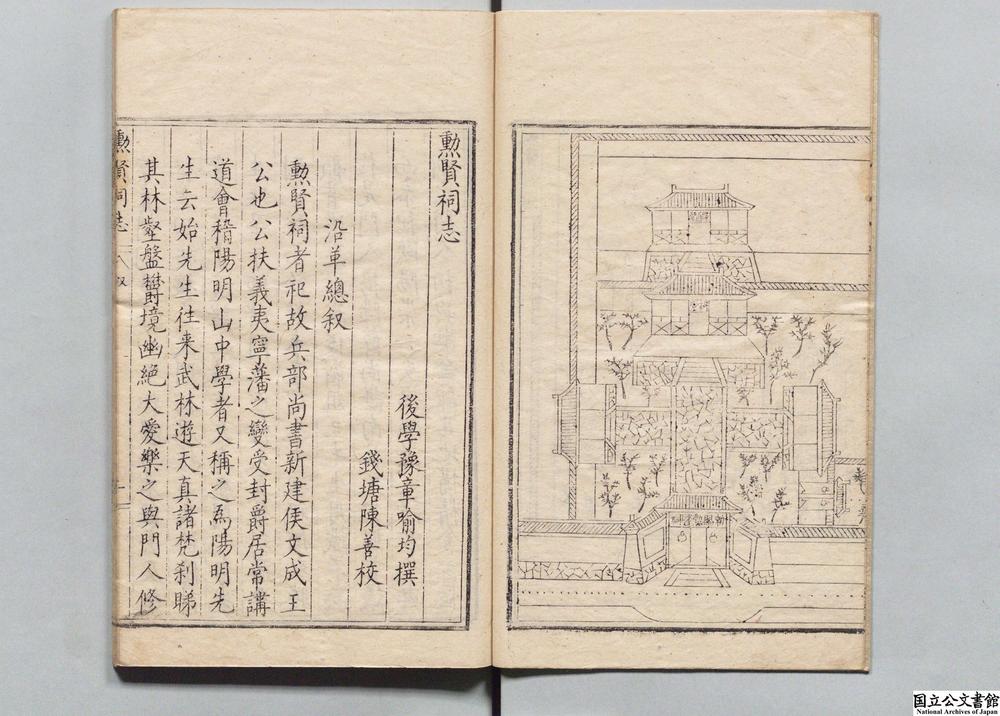 勲賢祠志
後學豫章喻均撰
錢塘陳善校
沿革總叙
勲賢祠者祀故兵部尚書新建侯文成王
公也公扶義夷寧藩之變受封爵居常講
道會稽陽明山中學者又稱之爲陽明先
生云始先生往来武林遊天真諸梵刹睇
其林壑盤欝境幽絕大愛樂之與門人修
勲賢祠志
国立公文書館
National Archives of Japan